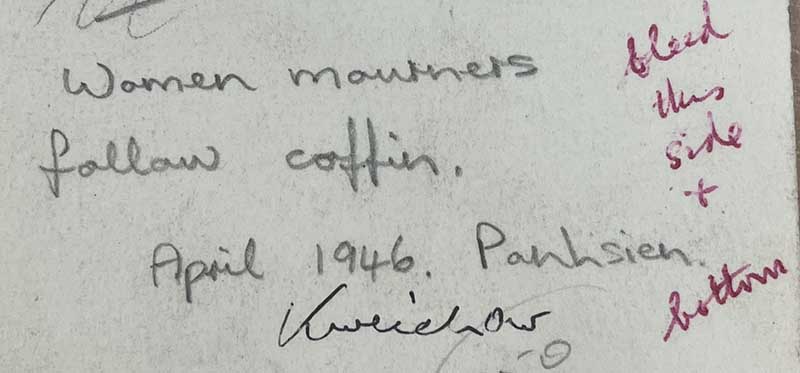 Women mourners
follow coffin.
April 1946. Panhsien.
Kweichow
bleed
this
side
+
bottom